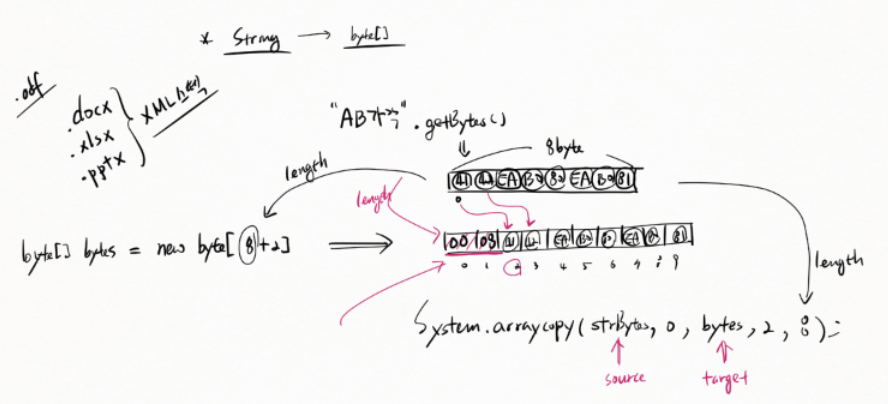 * String → byte[]
.odf
.docx
.xlsx
.pptx
XML
"AB가각".getBytes()
8byte
41 42 EA B0 80 EA B0 81
0
length
length
byte[] bytes = new byte[8+2]
00 08 41 42 EA B0 80 EA B0 81
0 1 2 3 4 5 6 7 8 9
length
System.arraycopy(strBytes, 0, bytes, 2, 8);
source
target